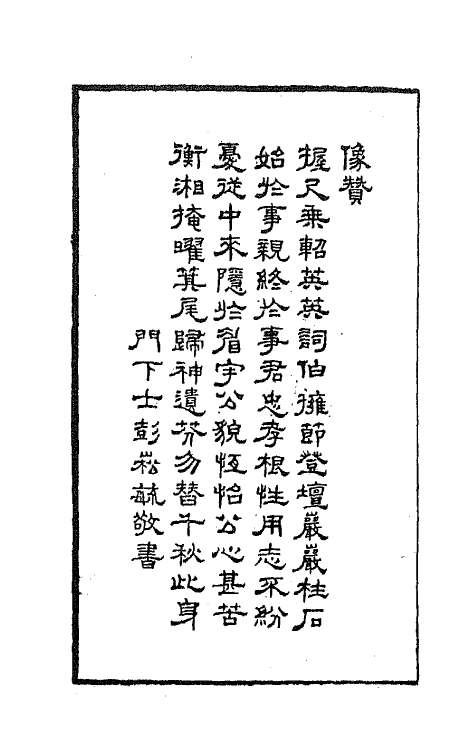 像贊
握尺乘軺英英詞伯擁節登壇巖巖柱石
始於事親終於事君忠孝根性用志不紛
憂從中來隱於眉宇公貌恆怡公心甚苦
衡湘掩曜箕尾歸神遺芬勿替千秋此身
門下士彭崧毓敬書